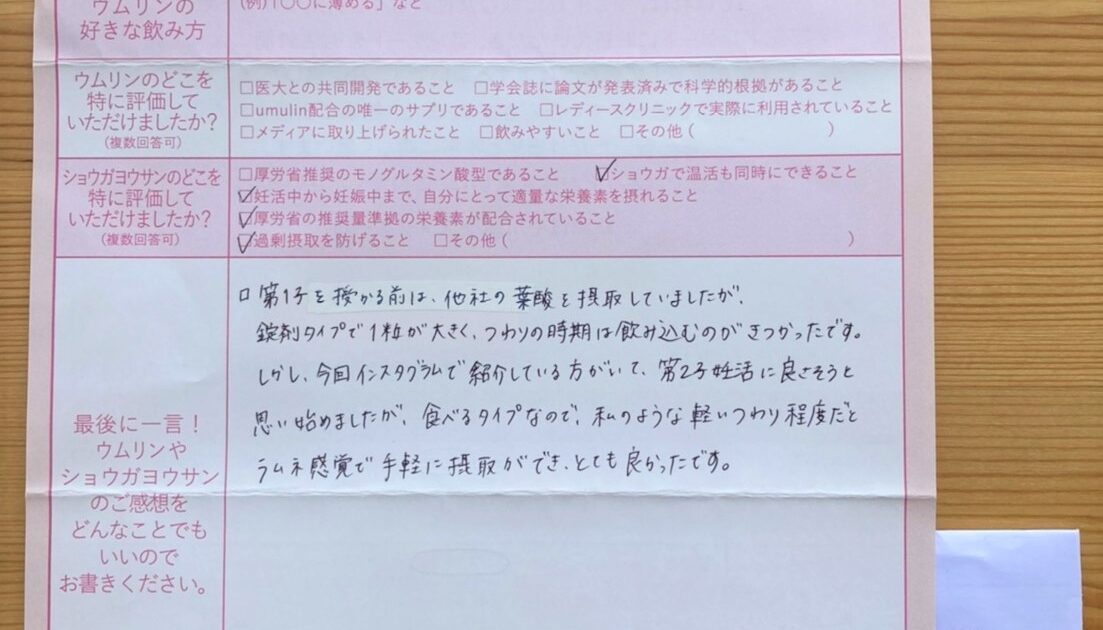 ウムリンの
好きな飲み方
(例)「〇〇に薄める」など
ウムリンのどこを
特に評価して
いただけましたか?
(複数回答可)
□医大との共同開発であること □学会誌に論文が発表済みで科学的根拠があること
□umulin配合の唯一のサプリであること □レディースクリニックで実際に利用されていること
□メディアに取り上げられたこと □飲みやすいこと □その他( )
ショウガヨウサンのどこを
特に評価して
いただけましたか?
(複数回答可)
□厚労省推奨のモノグルタミン酸型であること ☑ショウガで温活も同時にできること
☑妊活中から妊娠中まで、自分にとって適量な栄養素を摂れること
☑厚労省の推奨量準拠の栄養素が配合されていること
☑過剰摂取を防げること □その他( )
最後に一言!
ウムリンや
ショウガヨウサン
のご感想を
どんなことでも
いいので
お書きください。
□ 第1子を授かる前は、他社の葉酸を摂取していましたが、
錠剤タイプで1粒が大きく、つわりの時期は飲み込むのがきつかったです。
しかし、今回インスタグラムで紹介している方がいて、第2子妊活に良さそうと
思い始めましたが、食べるタイプなので、私のような軽いつわり程度だと
ラムネ感覚で手軽に摂取ができ、とても良かったです。